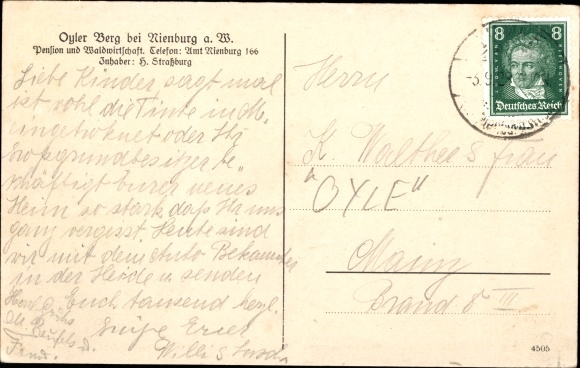 Oyler Berg bei Nienburg a. W.
Pension und Waldwirtschaft. Telefon: Amt Nienburg 166
Inhaber: H. Straßburg
Liebe Kinder sagt mal
ist wohl die Tinte in M.
eingetroknet oder Ihr
Großgrundbesitzer be
schäftigt Eurer neues
Heim so stark, daß Ihr uns
ganz vergisst Heute sind
wir mit dem Auto Bekannter
in der Heide u. senden
Euch tausend herzl.
Grüße
Willi
8 8
Deutsches Reich
Herrn
K. Walther & Frau
"OYLE"
Mainz
Brand 8 III
4505